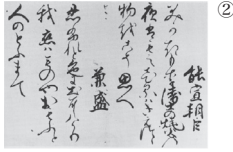 ②
能宣朝臣
みかきもり衛士の焼火の
夜はもえてひるはきえつゝ
物をこそ思へ
兼盛
忍ふれと色に出にけり
我恋はものやおもふと
人のとふまて